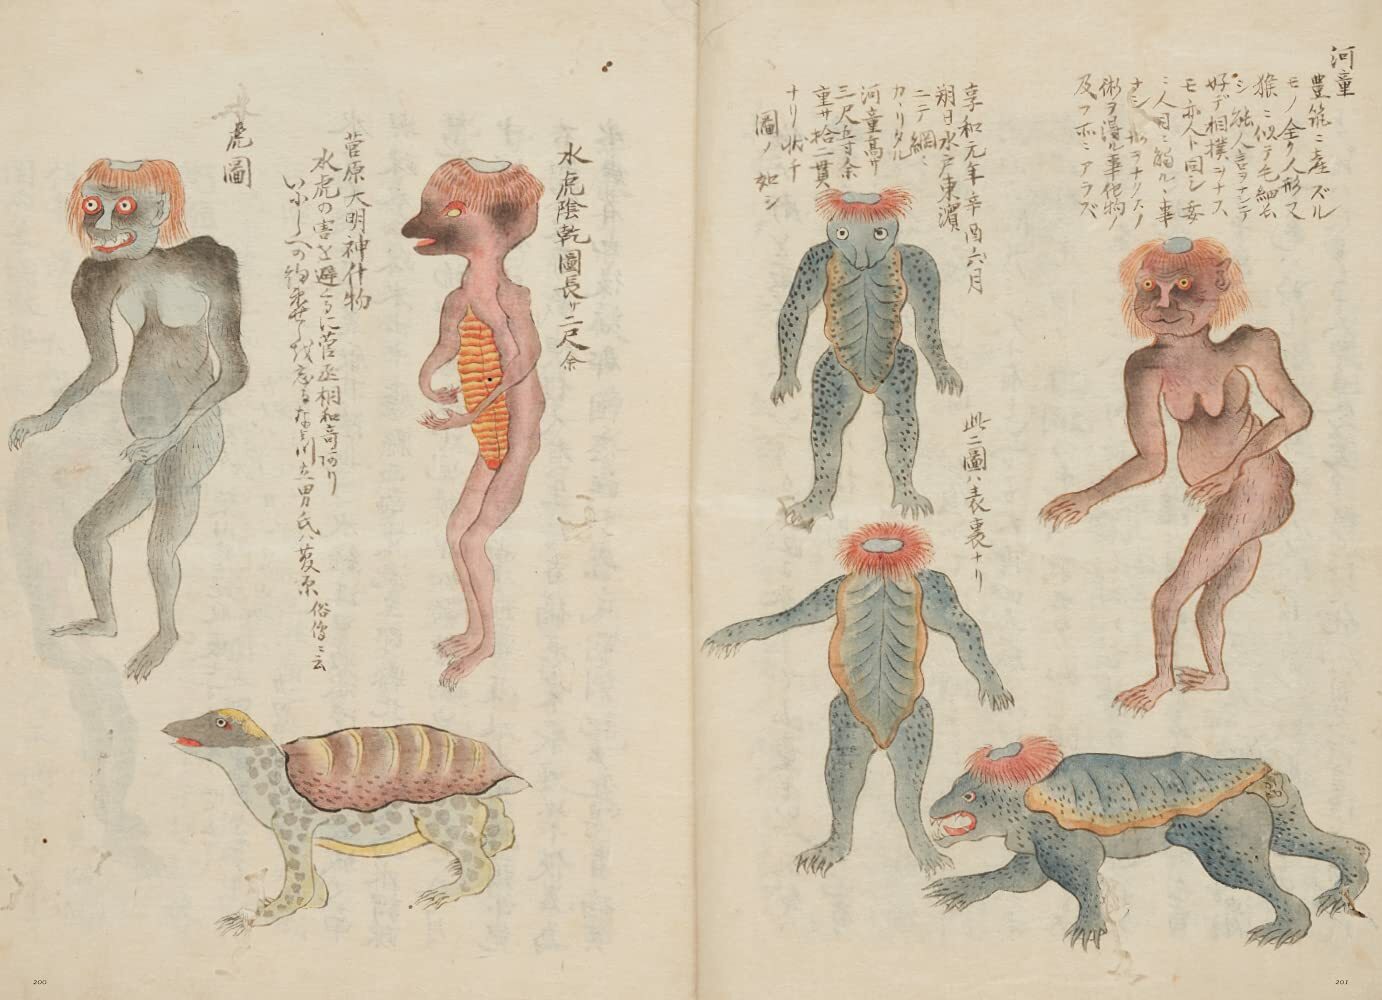 河童
豊筑ニ産ズル
モノ全ク人形ニ
猴ニ似テ毛細長
シ能人言ヲナシテ
好デ相撲ヲナス
モ亦人ト同シ妄
ニ人目ニ觸ルヽ事
ナシ形ヲナリスノ
術ヲ得ル事他物ノ
及フ亦ニアラズ
享和元年辛酉六月
朔日水戸東濱
ニテ網ニ
カヽリタル
河童高サ
三尺五寸余
重サ拾二貫
ナリ状チ
圖ノ如シ
此二圖ハ表裏ナリ
水虎陰乾圖長サ二尺余
菅原大明神什物
水虎の害を避るに菅丞相和哥あり
いにしへの約束せしを忘るなよ川立男氏ハ菅原
俗傳ニ云
虎圖
200
201